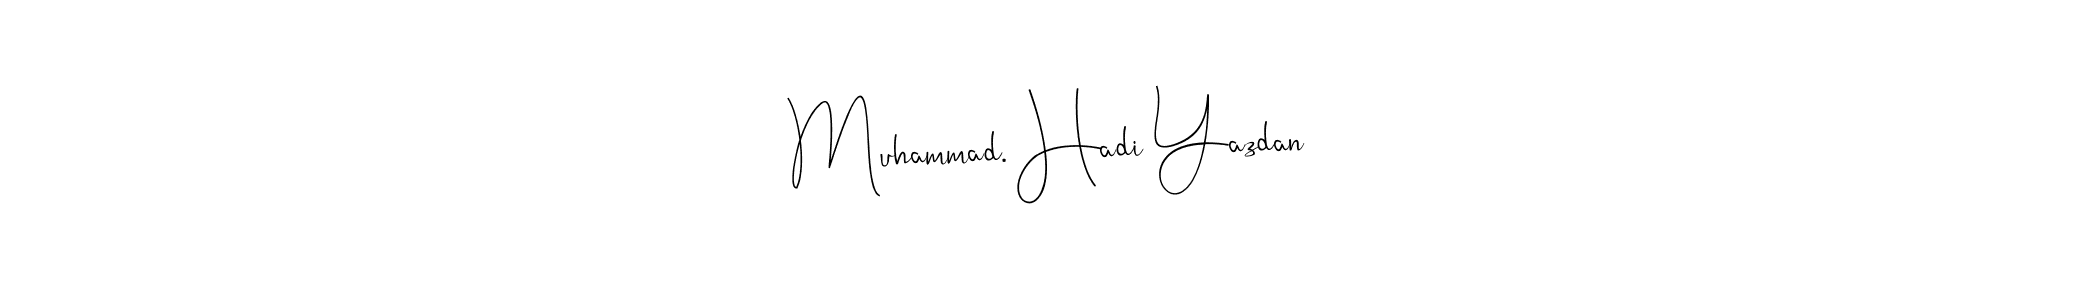 Muhammad. Hadi Yazdan